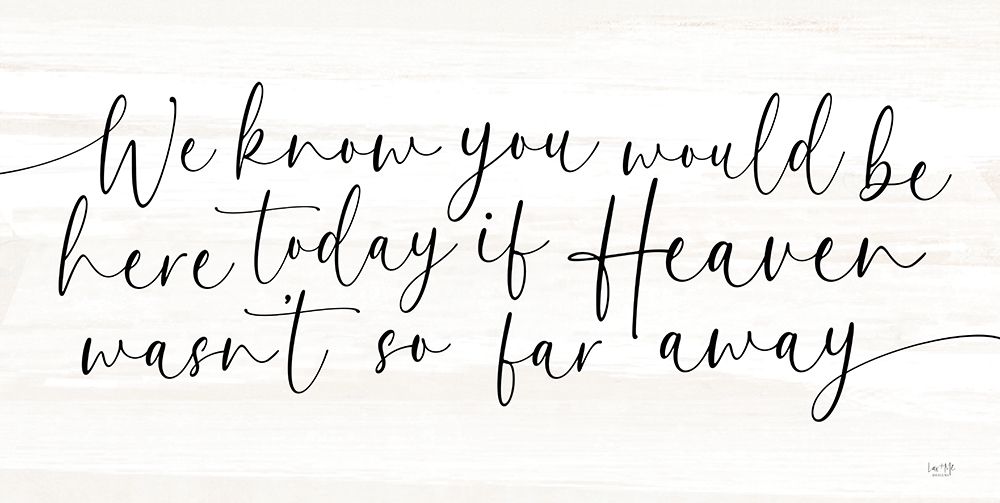 We know you would be
here today if Heaven
wasn't so far away
Lux + Me
DESIGNS